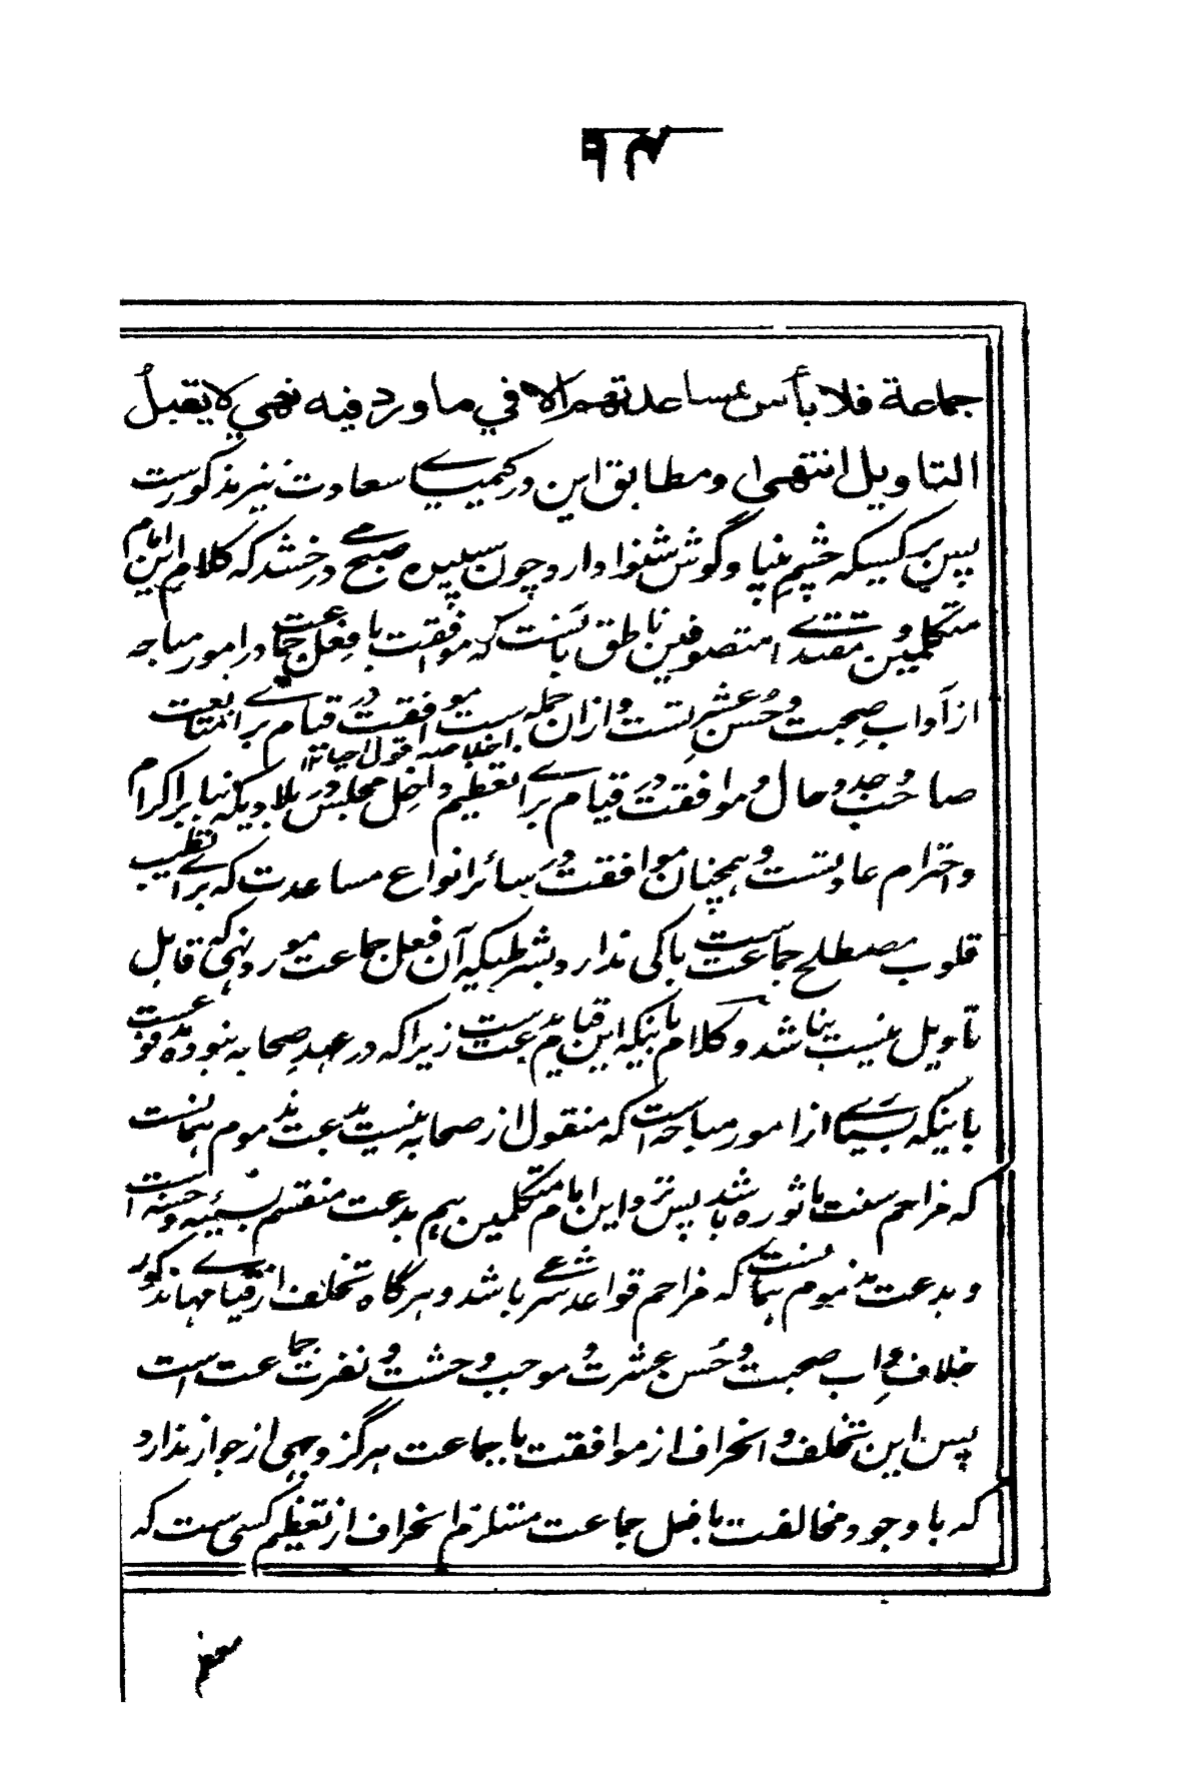 ۹۴
جماعة فلا بأس بمساعدتهم إلا في ما ورد فيه نهي لا يقبل
التاویل انتهی ومطابق این در کیمیاے سعادت نیز مذکورست
پس بر کسیکه چشم بینا و گوش شنوا دارد چون سپیده صبح مے درخشد که کلام این امام
متکلمین و مقتداے متصوفین ناطق بآنست که موافقت با فعل جماعت در امور مباحه
از آداب صحبت و حسن عشرتست و ازان جمله ست موافقت در قیام برائے متابعت
احیاء خلاصه قول
صاحب وجد و حال و موافقت در قیام برائے تعظیم داخل مجلس در بلادیکه بنا بر اکرام
و احترام عادتست و همچنان موافقت در سائر انواع مساعدت که برائے تطییب
قلوب مصطلح جماعت ست باکی ندارد بشرطیکه آن فعل جماعت مورد نهی که قابل
تأویل نیست نباشد و کلام باینکه این قیام بدعت ست زیرا که در عهد صحابه نبوده مدفوعست
باینکه بسیارے از امور مباحه است که منقول از صحابه نیست بدعت مذموم همانست
که مزاحم سنت ماثوره باشد پس نزد این امام متکلمین هم بدعت منقسم بسیئه و حسنه است
و بدعت مذموم همانست که مزاحم قواعد شرعے باشد و هرگاه تخلف از قیامهاے مذکور
خلاف آداب صحبت و حسن عشرت و موجب وحشت و نفرت جماعت است
پس این تخلف و انحراف از موافقت با جماعت هرگز وجهی از جواز ندارد
که با وجود مخالفت با فعل جماعت مستلزم انحراف از تعظیم کسی ست که